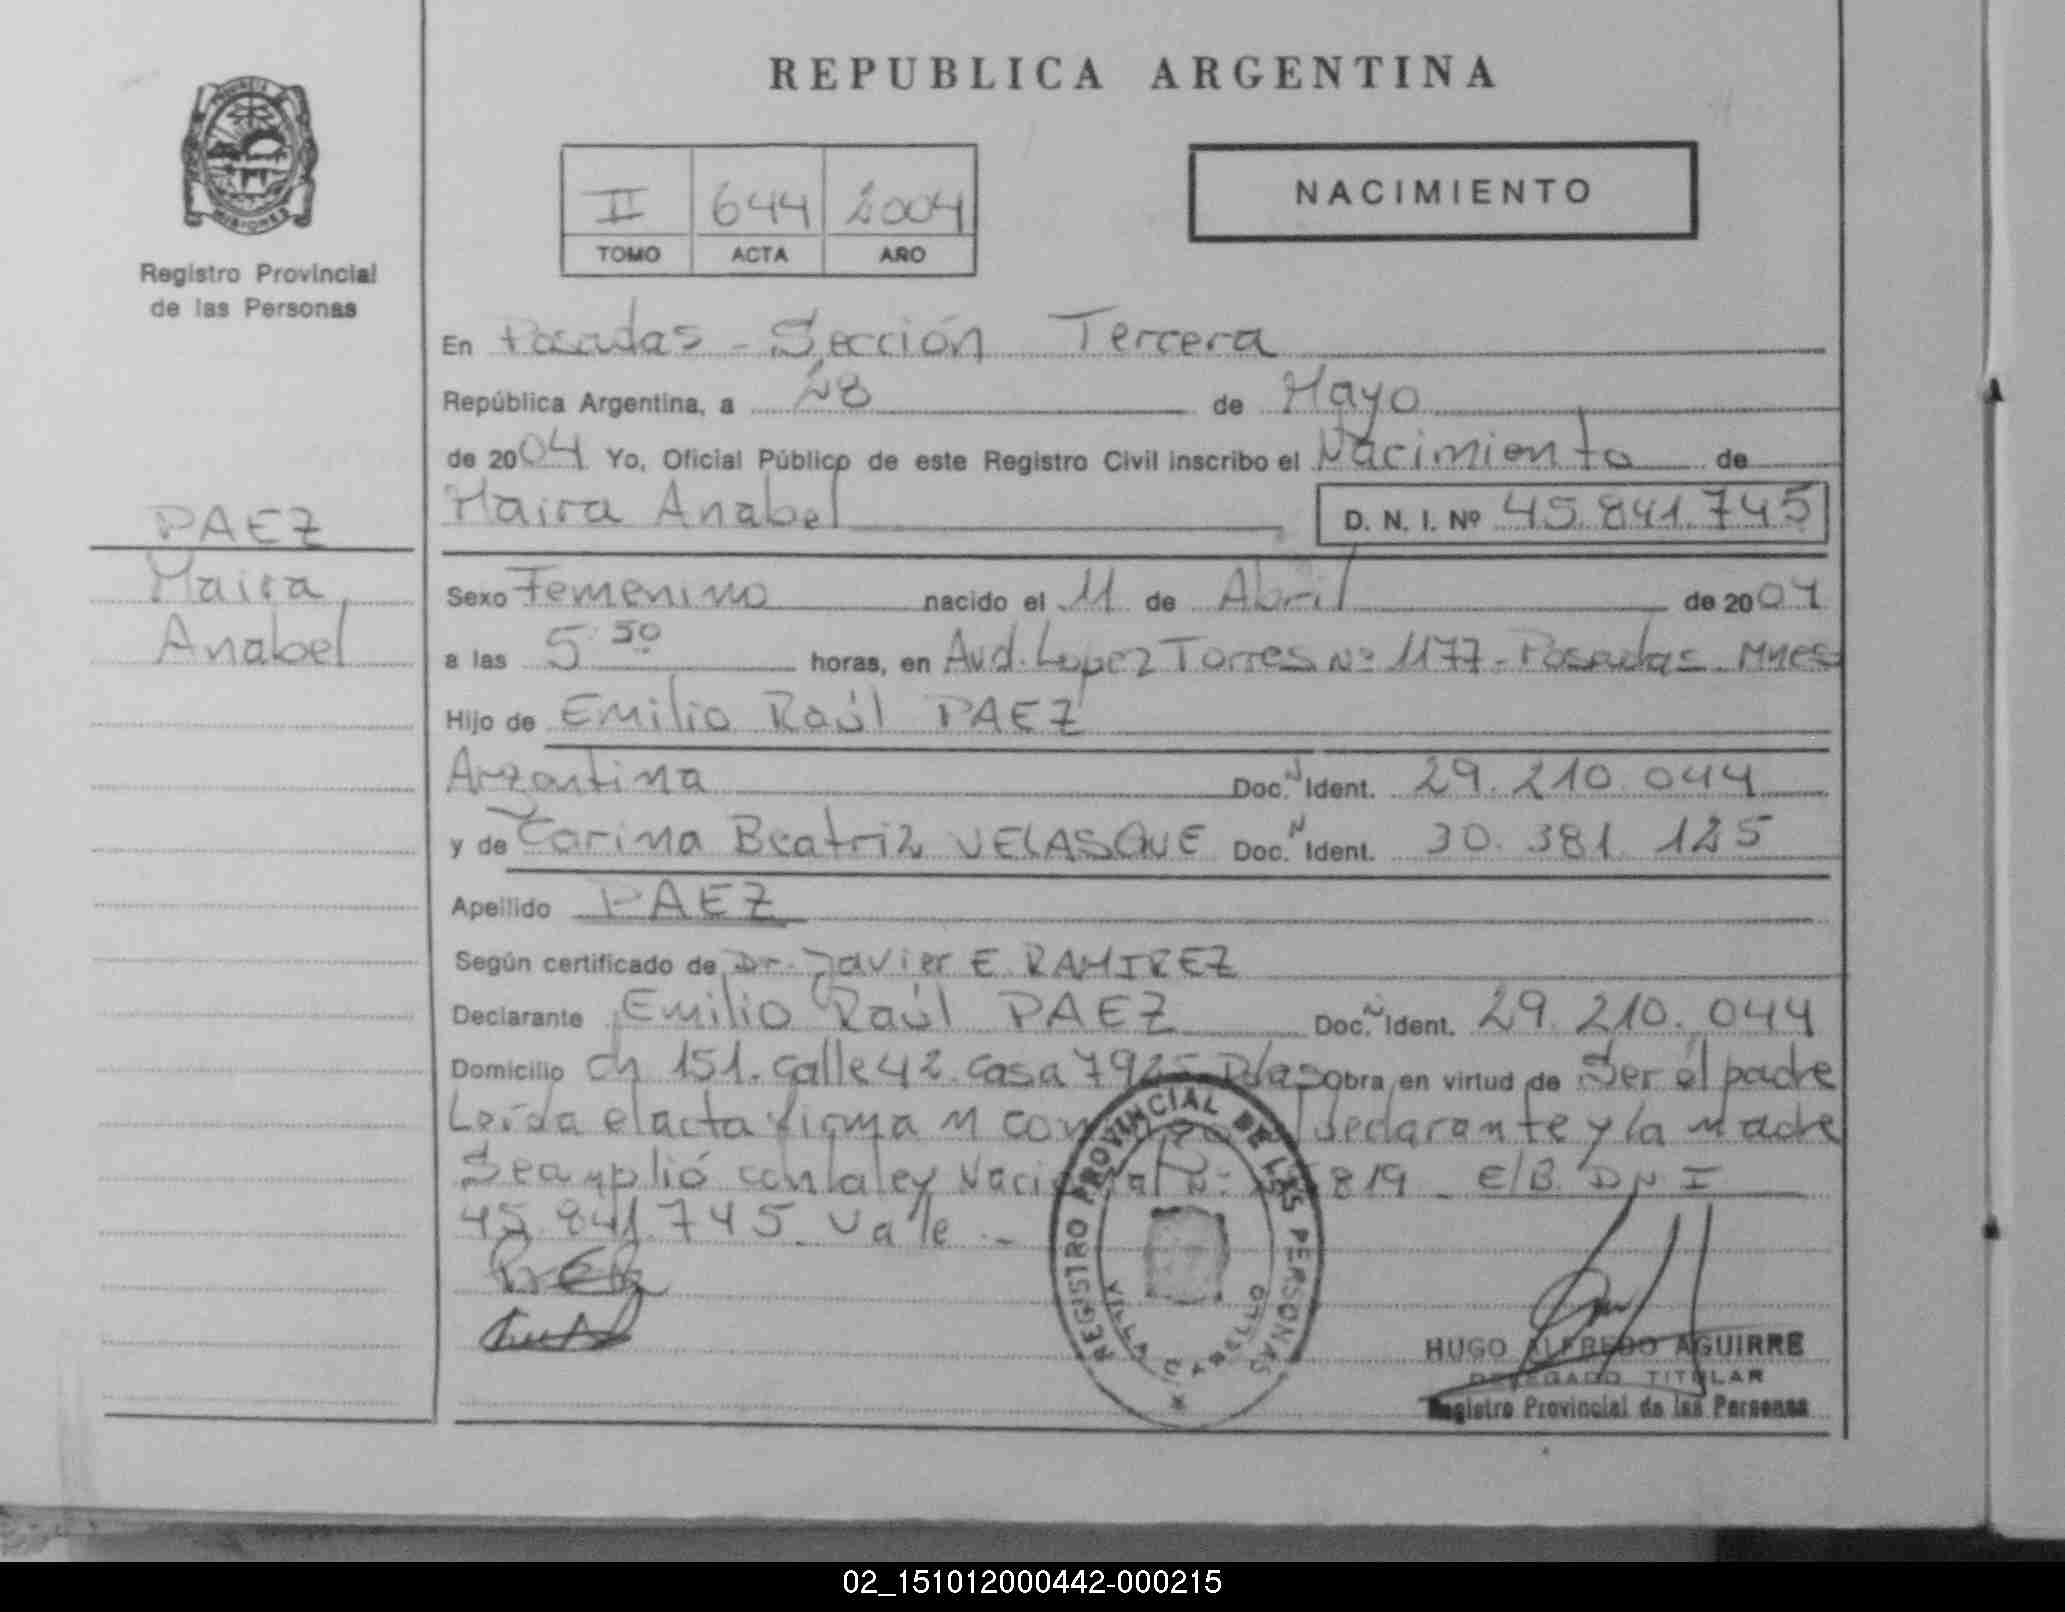 REPUBLICA ARGENTINA
PROVINCIA DE
MISIONES
Registro Provincial
de las Personas
II 644 2004
TOMO ACTA AÑO
NACIMIENTO
En Posadas - Sección Tercera
República Argentina, a 28 de Mayo
de 2004 Yo, Oficial Público de este Registro Civil inscribo el Nacimiento de
Maira Anabel D. N. I. Nº 45.841.745
PAEZ
Maira
Anabel
Sexo Femenino nacido el 11 de Abril de 2004
a las 5:50 horas, en Avd. Lopez Torres Nº 1177 - Posadas - Mnes
Hijo de Emilio Raúl PAEZ
Argentina Doc. N Ident. 29.210.044
y de Carina Beatriz VELASQUE Doc. N Ident. 30.381.125
Apellido PAEZ
Según certificado de Dr. Javier E. RAMIREZ
Declarante Emilio Raúl PAEZ Doc. N Ident. 29.210.044
Domicilio ch 151. calle 42. casa 7925 Pdas obra en virtud de Ser el padre
Leída el acta firman declarante y la madre
Se amplió con la ley Nacional Nº 819 - E/B. DNI
45.841.745. Vale.-
REGISTRO PROVINCIAL DE LAS PERSONAS
VILLA CABELLO
HUGO ALFREDO AGUIRRE
DELEGADO TITULAR
Registro Provincial de las Personas
02_151012000442-000215